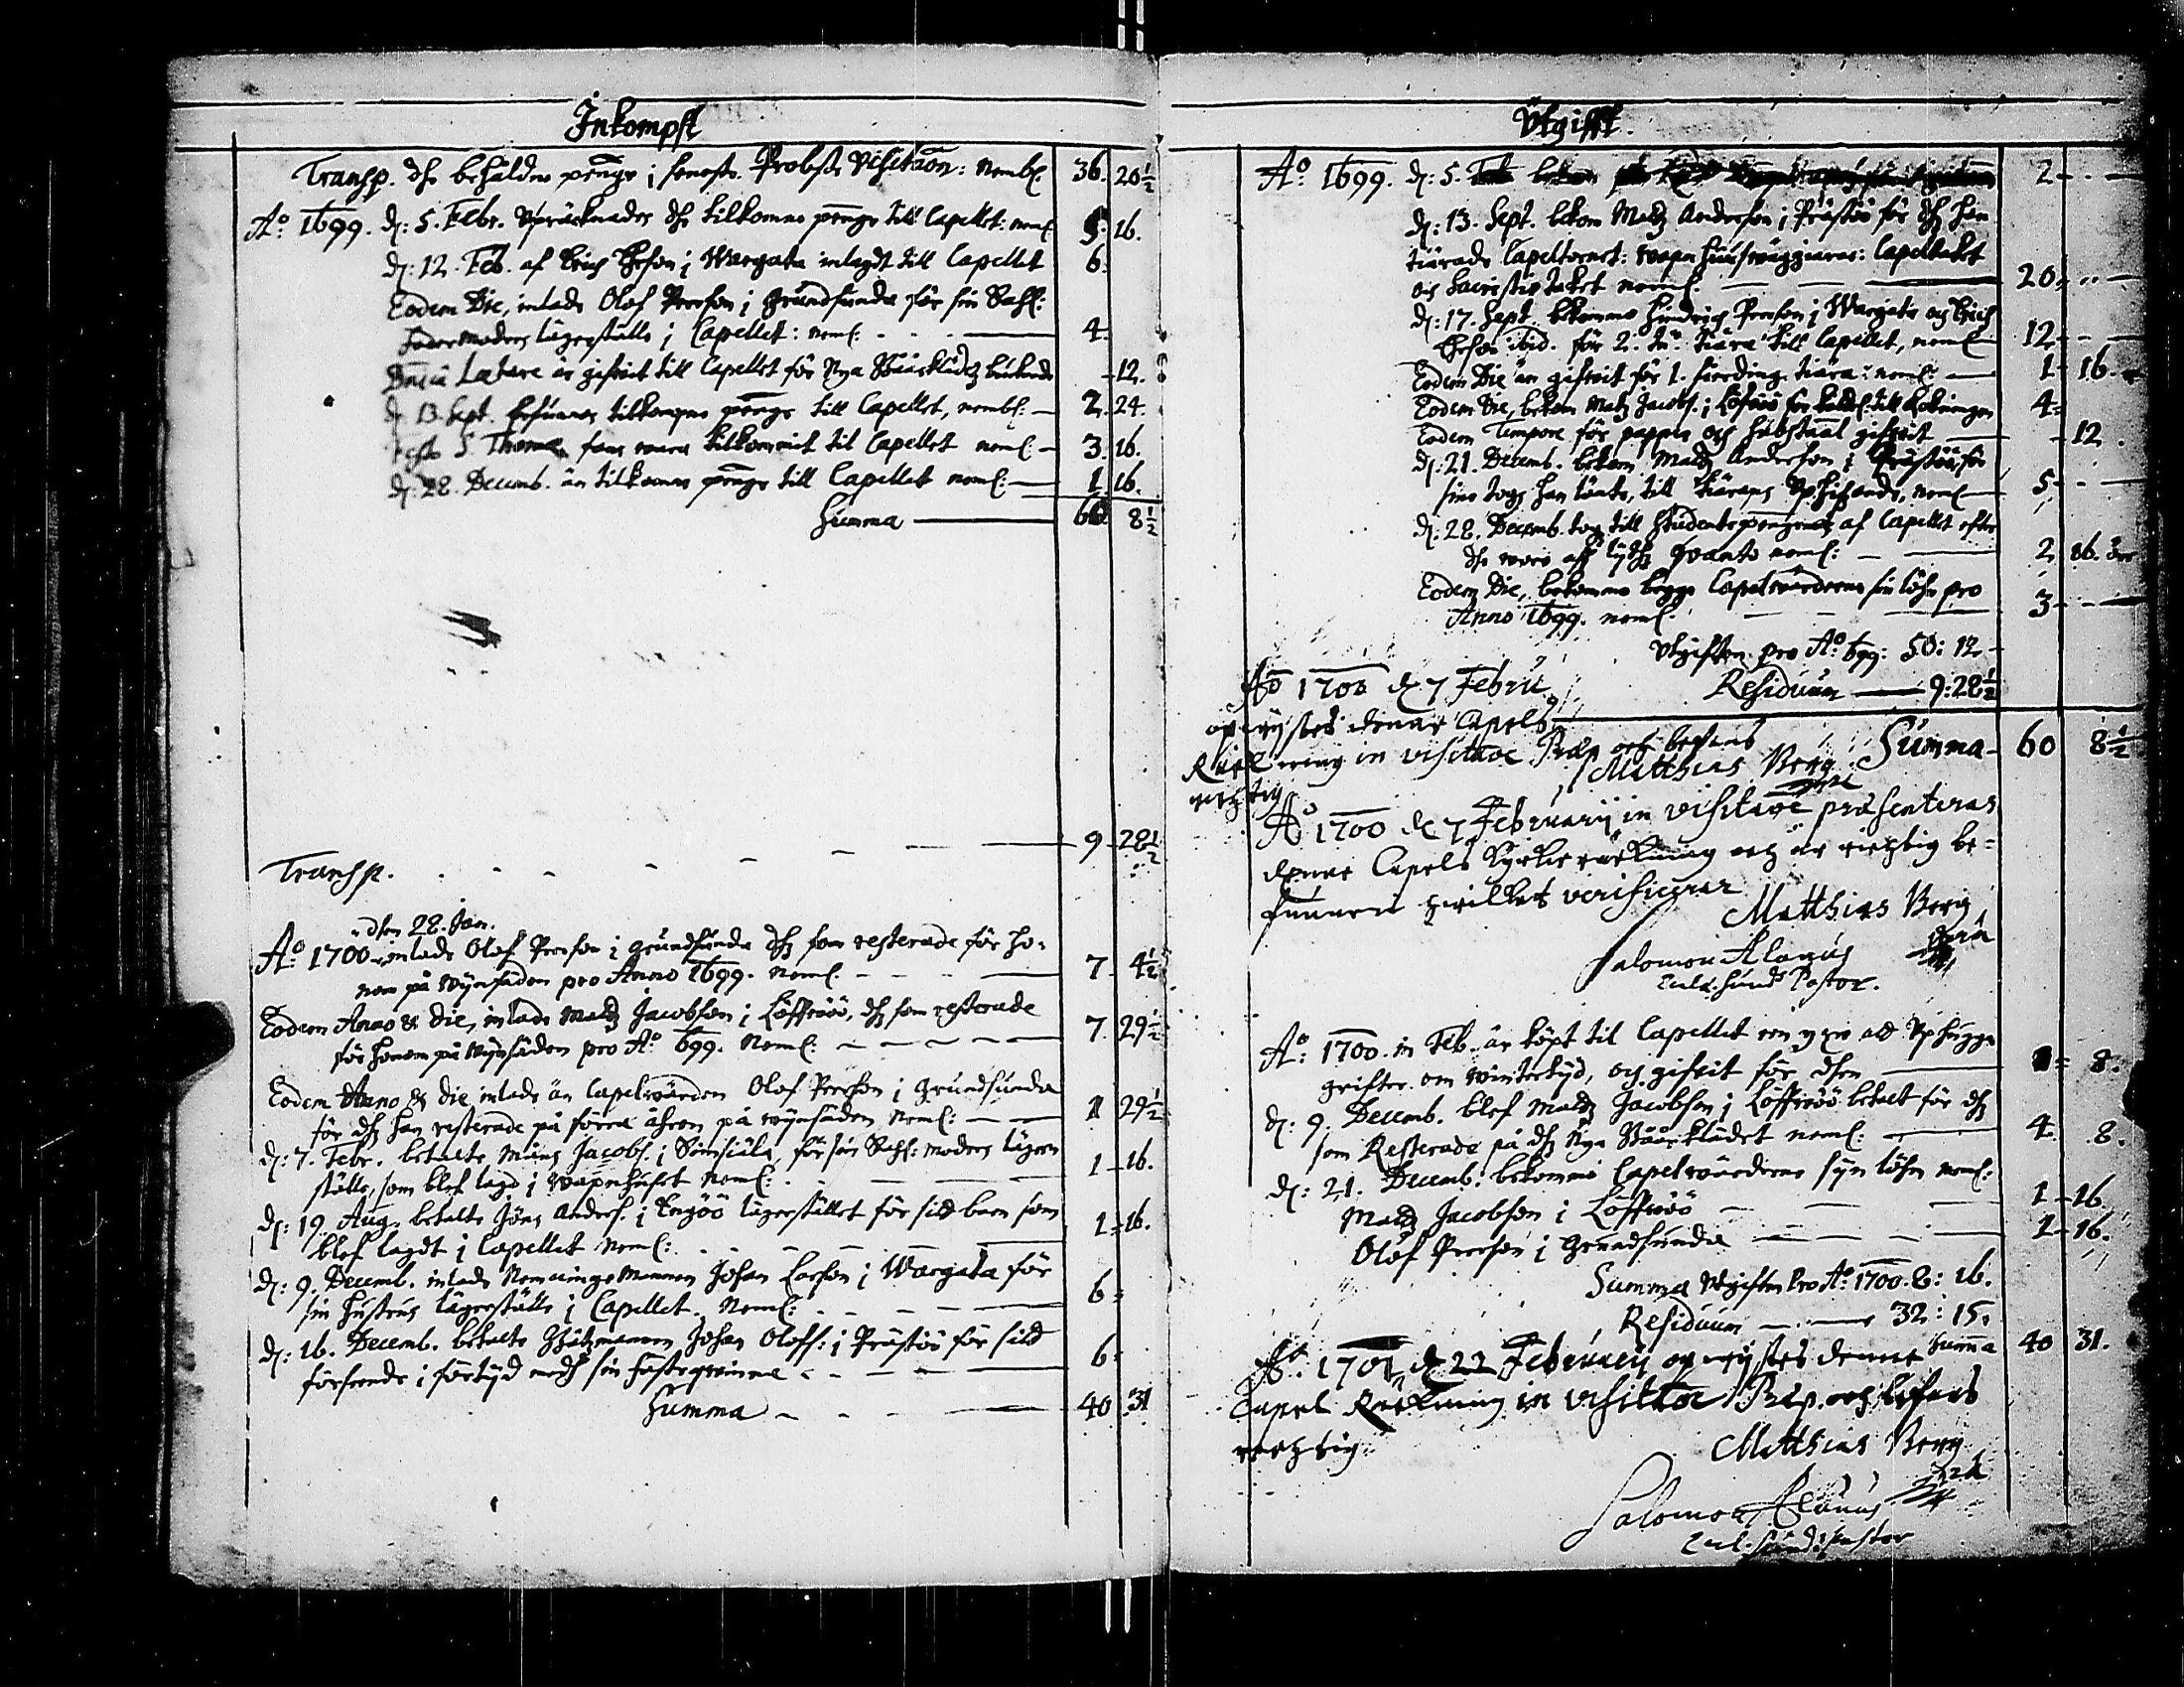 Inkompst
Transp. dhe behåldne penge i seneste Probste Visitaõn: nembl 36. 20½
Aº: 1699. d: 5. Febr. Upräcknades dhe tilkomne penge till Capellet: neml 5. 16.
d: 12. Feb. af Erich Ersson i Wargata inlagdt till Capellet 6.
Eodem Die, inlade Olof Peersson i Grundsunda för sin Sahl:
Fader moders lägerställe i Capellet: neml: 4.
Dnica Lætare är gifwit till Capellet för Nya Bååreklädetz - 12.
d. 13. Sept. tilkomne penge till Capellet, nembl: 2. 24.
Festo S. Thomæ fans wara tilkommit til Capellet neml: 3. 16.
d: 28. Decemb. är tilkomne penge till Capellet neml: 1 16.
Summa 60. 8½
Transp. 9 28½
dhen 28. Jan.
Aº 1700 inlade Olof Peersson i Grundsunda dhz som resterade för ho-
nom på wijnsäden pro Anno 1699. neml. 7. 4½
Eodem Anno & die, inlade Matz Jacobsson i Löfwöö, dhz som resterade
för honom på wijnsäden pro Aº 699. Neml: 7. 29½
Eodem Anno & die inlade än Capelwärden Olof Peersson i Grundsunda
för dhz han resterade på förra åhren på wijnsäden neml: 1 29½
d: 7. Febr. betalte Måns Jacobs. i för sin Sahl: moders läger-
ställe, som blef lagd i wapnhuset neml: 1 16.
d: 19. Aug. betalte Jöns Anders. i Engöö lägerstället för sitt barn som
blef lagdt i Capellet neml: 1 = 16.
d: 9. Decemb. inlade Johan Larsson i Wargata för
sin hustrus lägerställe i Capellet. Neml: 6 =
d: 16. Decemb. betalte Johan Olofs: i Prästöö för sitt
förseende i förtijd medh sin Fästeqwinna 6 =
Summa 40 31
Utgifft.
Aº: 1699. d: 5. 2 -
d: 13. Sept. bekom Matz Andersson i Prästöö för dhz han
tiärade Capeltornet: wapnhuuswäggiarne: Capeltaket
och Sacristie taket neml: 20 =
d: 17. Sept. bekomme Hindrich Peersson i Wargata och Erich
Ersson ibid. för 2. tu: tiära till Capellet, neml. 12 -
Eodem Die är gifwit för 1. fierding tiära: neml: 1 16.
Eodem Die, bekom Matz Jacobs. i Löfwöö 4 =
Eodem Tempore för papper och gifwit - 12.
d: 21. Decemb. bekom Matz Andersson i Prästöö, för
sine tog han länte, till tiärans neml 5 -
d: 28. Decemb. tog till Studentepengar af Capellet efter
neml: 2 16. öre
Eodem Die, bekomme begge Capelwärderne sin löhn pro
Anno 1699. neml. 3 -
Utgiften pro Aº 699: 50: 12
Residuum 9: 28½
Summa 60 8½
Aº 1700 d 7 Febru
denne Capels
Räkning in visitaõe Præp. och befans
richtig
Matthias Berg
Aº 1700 d 7 Februarij in visitaõe præsenteras
denne Capels Kyrkie räkning och är richtig be-
funnen hwilket verificerar
Matthias Berg
Salomon Alanus
Pastor.
Aº: 1700. in Feb. är köpt til Capellet en yxe att Uphugga
grifter om wintertijd, och gifwit för dhen = 8.
d: 9. Decemb. blef Matz Jacobsson i Löfwöö betalt för dhz
som Resterade på dhz Nya Bååreklädet neml: 4. 8.
d: 21. Decemb: bekomme Capelwärderne sijn löhn neml:
Matz Jacobsson i Löfwöö 1 - 16.
Olof Peersson i Grundsunda 1 - 16.
Summa Utgiften Pro Aº: 1700. 8: 16.
Residuum 32: 15.
Summa 40 31.
Aº: 1701, d 22 Februarij denne
Capel Räkning in visitaõe Præp. och befans
rechtig
Matthias Berg
Salomon Alanus
Pastor